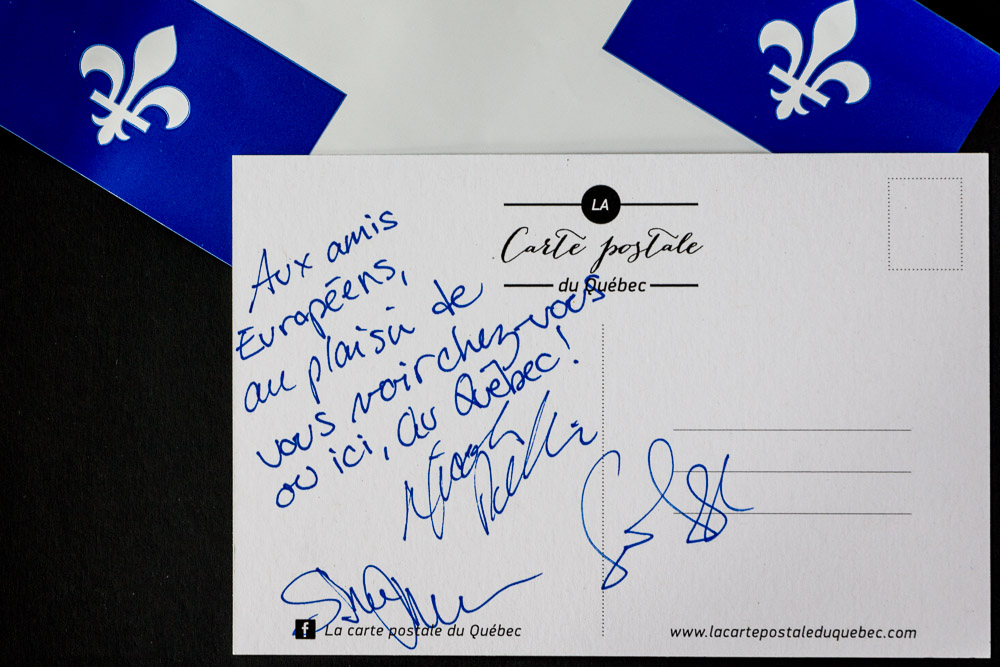 LA
Carte postale
du Québec
Aux amis
Européens,
au plaisir de
vous voir chez-vous
ou ici, au Québec!
La carte postale du Québec
www.lacartepostaleduquebec.com